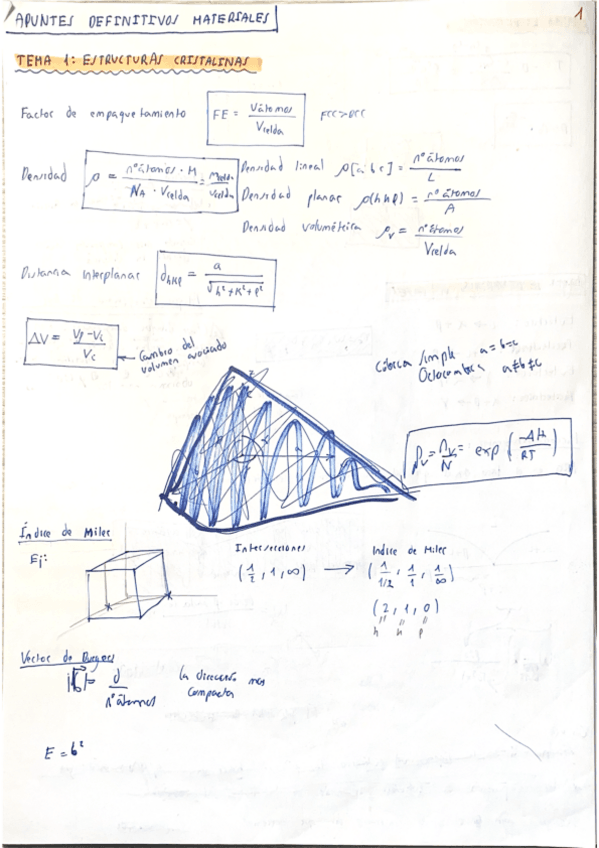 APUNTES DEFINITIVOS MATERIALES
1
TEMA 1: ESTRUCTURAS CRISTALINAS
Factor de empaquetamiento FE = Vátomos / Vcelda FCC>BCC
Densidad ρ = nºátomos · M / NA · Vcelda = mcelda / Vcelda
Densidad lineal ρ[a b c] = nºátomos / L
Densidad planar ρ(h k l) = nºátomos / A
Densidad volumétrica ρv = nºátomos / Vcelda
Distancia interplanar dhkl = a / √h²+k²+l²
ΔV = Vf-Vi / Vi ← Cambio del volumen asociado
Cúbica simple a=b=c
a≠b≠c
ρv = nv / N = exp (-ΔH / RT)
Índice de Miler
Ej:
Intersecciones
(1/2, 1, ∞) →
Indice de Miler
(1/1/2, 1/1, 1/∞)
(2, 1, 0)
h k l
Vector de Burgers
|b| = d / nºátomos
la dirección mas compacta
E = b²